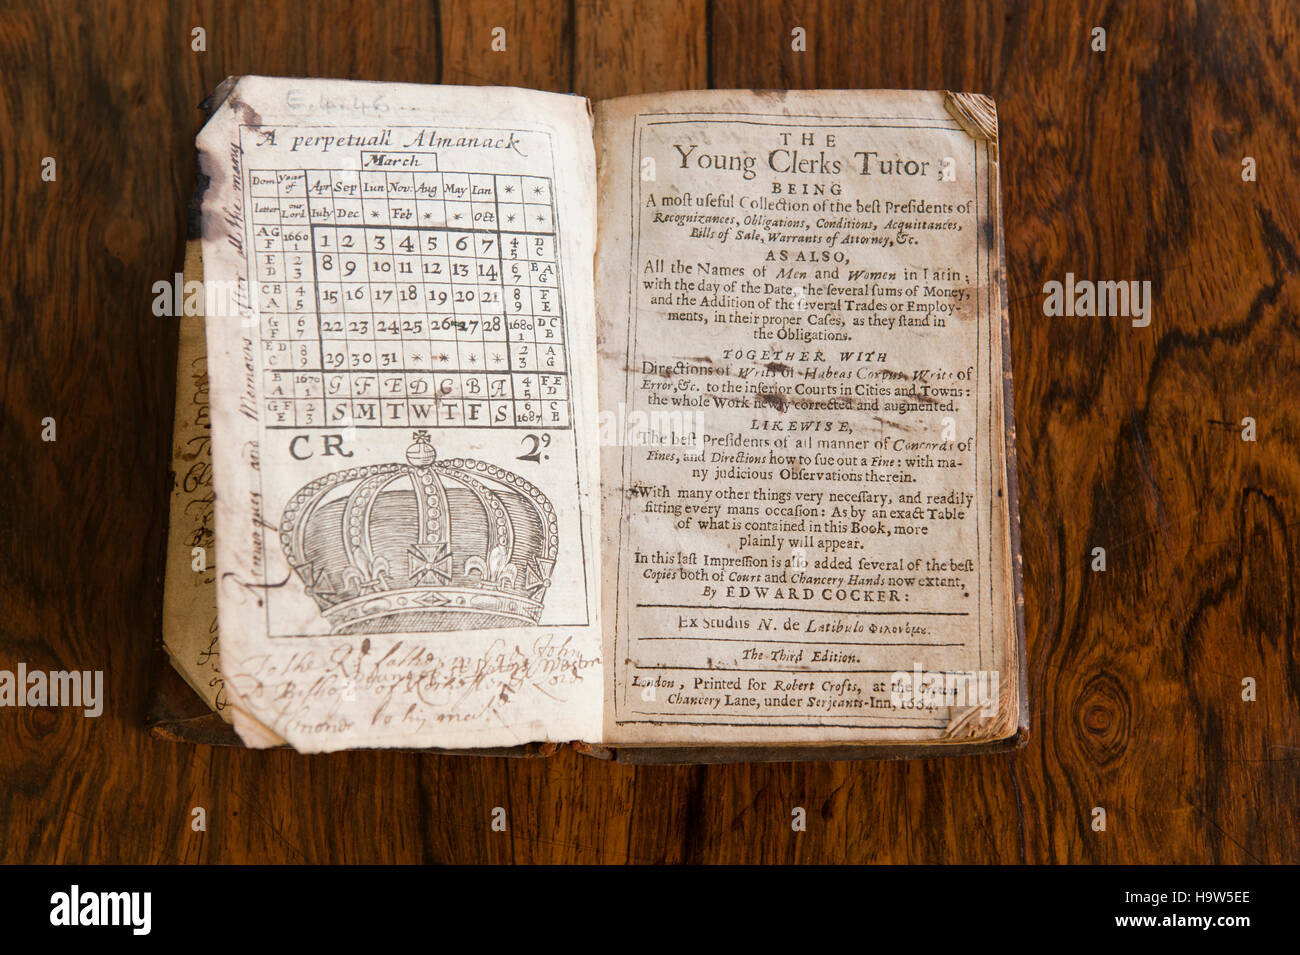 E.4.46
A perpetuall Almanack
March
Dom Year of Apr Sep Iun Nov: Aug May Ian * *
letter our Lord Iuly Dec * Feb * * Oct * *
AG F 1660 1 1 2 3 4 5 6 7 4 5 D C
E D 2 3 8 9 10 11 12 13 14 6 7 BA G
CB A 4 5 15 16 17 18 19 20 21 8 9 F E
G F 6 7 22 23 24 25 26 27 28 1680 1 DC B
ED C 8 9 29 30 31 * * * * 2 3 A G
B A 1670 1 G F E D C B A 4 5 FE D
GF E 2 3 S M T W T F S 6 1687 C B
CR 2º
To the Rd father
John
Bishop of Rochester Lord
Almoner to his
Remarques and Memoirs after all the many
THE
Young Clerks Tutor;
BEING
A most useful Collection of the best Presidents of
Recognizances, Obligations, Conditions, Acquittances,
Bills of Sale, Warrants of Attorney, &c.
AS ALSO,
All the Names of Men and Women in Latin;
with the day of the Date, the several sums of Money,
and the Addition of the several Trades or Employ-
ments, in their proper Cases, as they stand in
the Obligations.
TOGETHER WITH
Directions of Writs of Habeas Corpus, Writs of
Error, &c. to the inferior Courts in Cities and Towns:
the whole Work newly corrected and augmented.
LIKEWISE,
The best Presidents of all manner of Concords of
Fines, and Directions how to sue out a Fine: with ma-
ny judicious Observations therein.
With many other things very necessary, and readily
fitting every mans occasion: As by an exact Table
of what is contained in this Book, more
plainly will appear.
In this last Impression is also added several of the best
Copies both of Court and Chancery Hands now extant,
By EDWARD COCKER:
Ex Studiis N. de Latibulo Φιλονόμου.
The Third Edition.
London, Printed for Robert Crofts, at the Crown
Chancery Lane, under Serjeants-Inn, 1664.
a
alamy
Image ID: H9W5EE
www.alamy.com